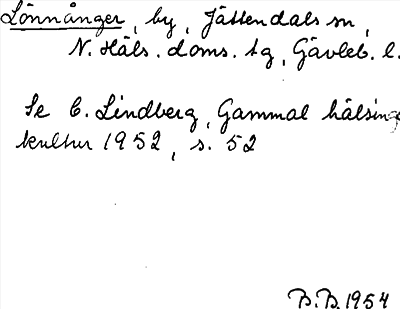 Lönnånger, by, Jättendals sn,
N. Häls. doms. tg, Gävleb. l.
Se C. Lindberg, Gammal hälsinge
kultur 1952, s. 52
B.B. 1954